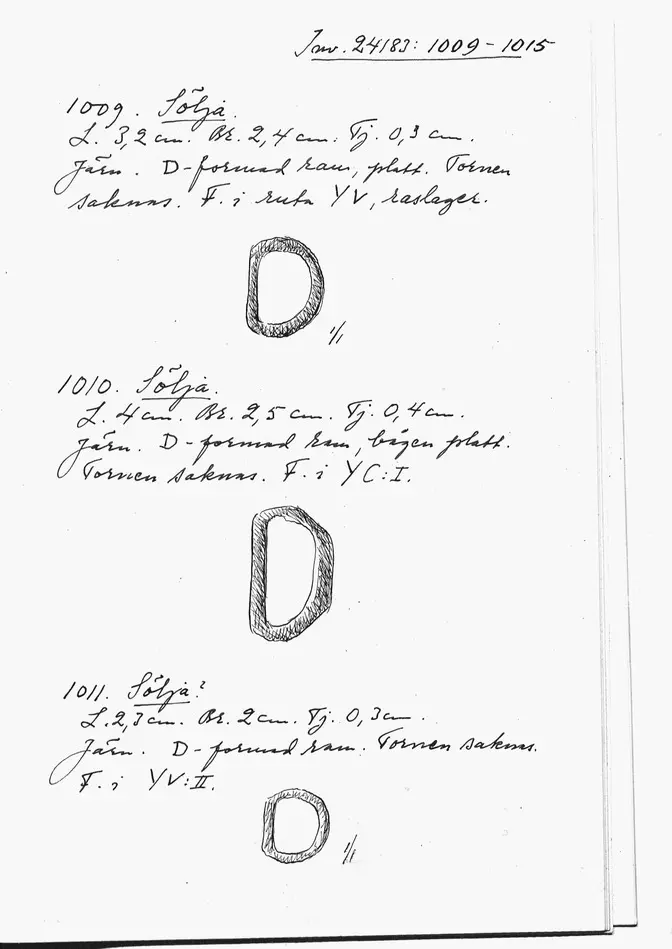 Inv. 24183: 1009-1015
1009. Sölja.
L. 3,2 cm. Br. 2,4 cm. Tj. 0,3 cm.
Järn. D-formad ram, platt. Tornen
saknas. F. i ruta YV, raslager.
1/1
1010. Sölja.
L. 4 cm. Br. 2,5 cm. Tj. 0,4 cm.
Järn. D-formad ram, bågen platt.
Tornen saknas. F. i YC:I.
1011. Sölja?
L. 2,3 cm. Br. 2 cm. Tj. 0,3 cm.
Järn. D-formad ram. Tornen saknas.
F. i YV:II.
1/1